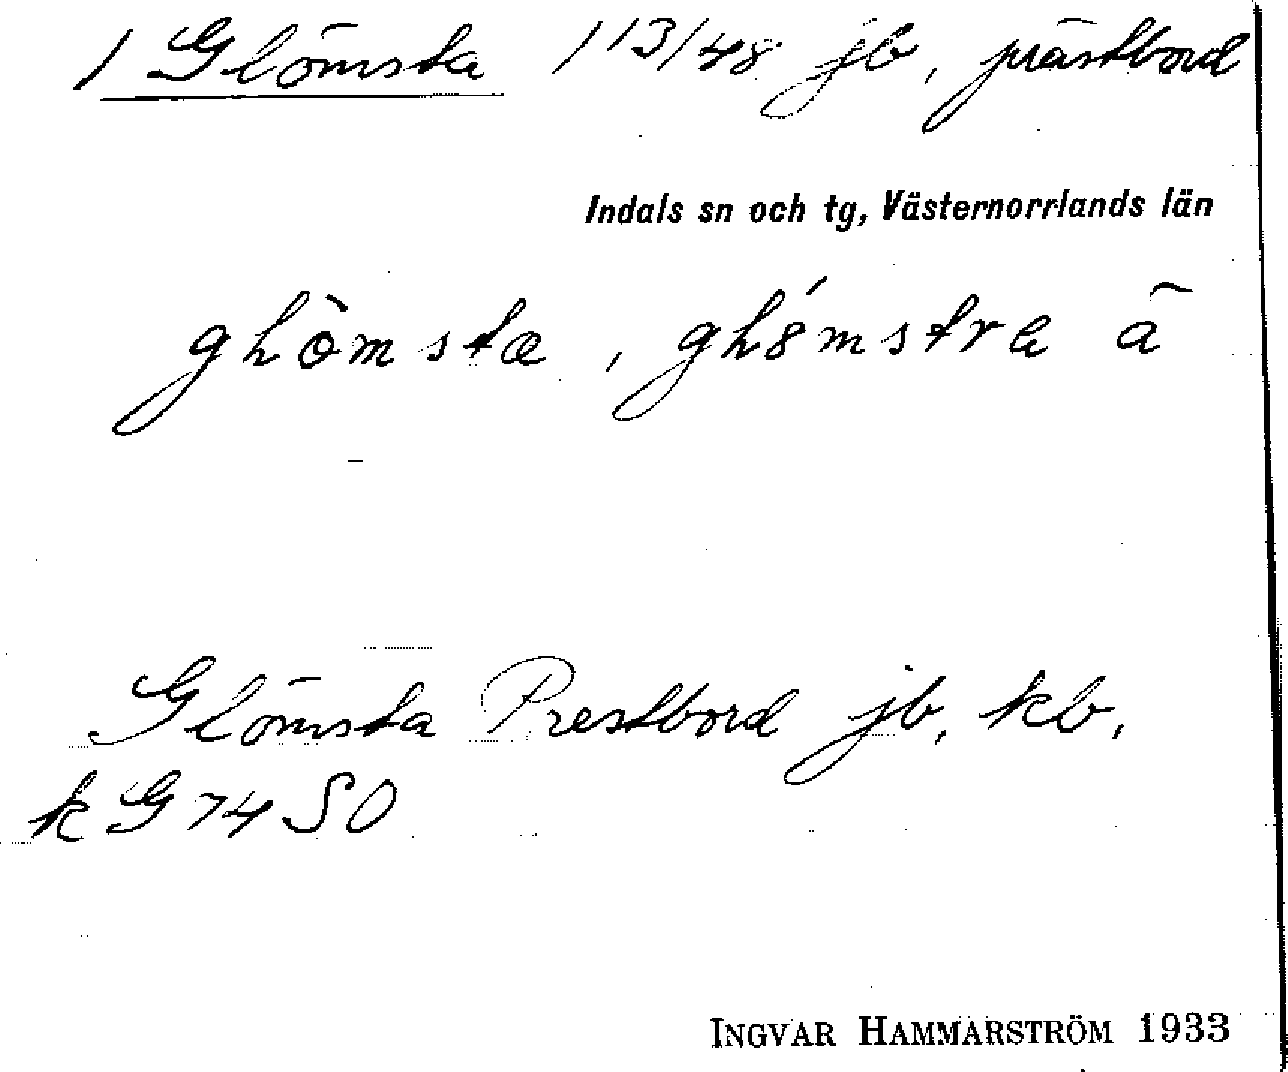 1 Glömsta 113/48 jb, prästbord
Indals sn och tg, Västernorrlands län
Glömsta Prestbord jb, kb,
k G 74 SO
INGVAR HAMMARSTRÖM 1933